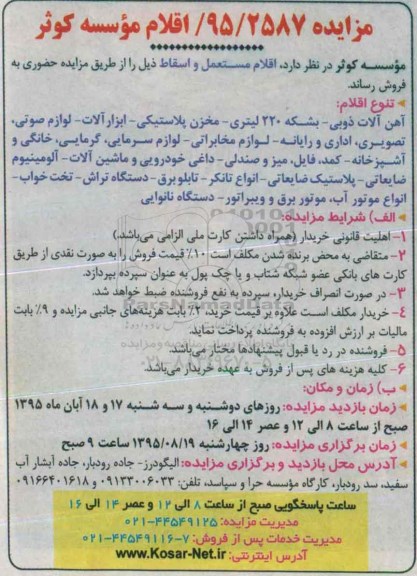 مزایده ۹۵/۲۵۸۷/ اقلام مؤسسه کوثر
مؤسسه کوثر در نظر دارد، اقلام مستعمل و اسقاط ذیل را از طریق مزایده حضوری به
فروش رساند.
تنوع اقلام:
آهن آلات ذوبی- بشکه ۲۲۰ لیتری- مخزن پلاستیکی- ابزارآلات- لوازم صوتی،
تصویری، اداری و رایانه- لوازم مخابراتی- لوازم سرمایی، گرمایی، خانگی و
آشپزخانه- کمد، فایل، میز و صندلی- داغی خودرویی و ماشین آلات- آلومینیوم
ضایعاتی- پلاستیک ضایعاتی- انواع تانکر- تابلو برق- دستگاه تراش- تخت خواب-
انواع موتور آب، موتور برق و ویبراتور- دستگاه نانوایی
الف) شرایط مزایده:
۱- اهلیت قانونی خریدار (همراه داشتن کارت ملی الزامی می‌باشد.)
۲- متقاضی به محض برنده شدن مکلف است ۱۰٪ قیمت فروش را به صورت نقدی از طریق
کارت های بانکی عضو شبکه شتاب و یا چک پول به عنوان سپرده بپردازد.
۳- در صورت انصراف خریدار، سپرده به نفع فروشنده ضبط خواهد شد.
۴- خریدار مکلف است علاوه بر قیمت خرید، ۲٪ بابت هزینه‌های جانبی مزایده و ۹٪ بابت
مالیات بر ارزش افزوده به فروشنده پرداخت نماید.
۵- فروشنده در رد یا قبول پیشنهادها مختار می‌باشد.
۶- کلیه هزینه های پس از فروش به عهده خریدار می‌باشد.
ب) زمان و مکان:
زمان بازدید مزایده: روزهای دوشنبه و سه شنبه ۱۷ و ۱۸ آبان ماه ۱۳۹۵
صبح از ساعت ۸ الی ۱۲ و عصر ۱۴ الی ۱۶
زمان برگزاری مزایده: روز چهارشنبه ۱۳۹۵/۰۸/۱۹ ساعت ۹ صبح
آدرس محل بازدید و برگزاری مزایده: الیگودرز- جاده رودبار، جاده آبشار آب
سفید، سد رودبار، کارگاه مؤسسه حرا و سپاسد، تلفن: ۰۹۱۳۳۰۰۶۰۳۳ و ۰۹۱۶۶۴۰۱۶۱۸
ساعت پاسخگویی صبح از ساعت ۸ الی ۱۲ و عصر ۱۴ الی ۱۶
مدیریت مزایده: ۴۴۵۴۹۱۲۵-۰۲۱
مدیریت خدمات پس از فروش: ۷-۴۴۵۴۹۱۱۶-۰۲۱
آدرس اینترنتی: www.Kosar-Net.ir